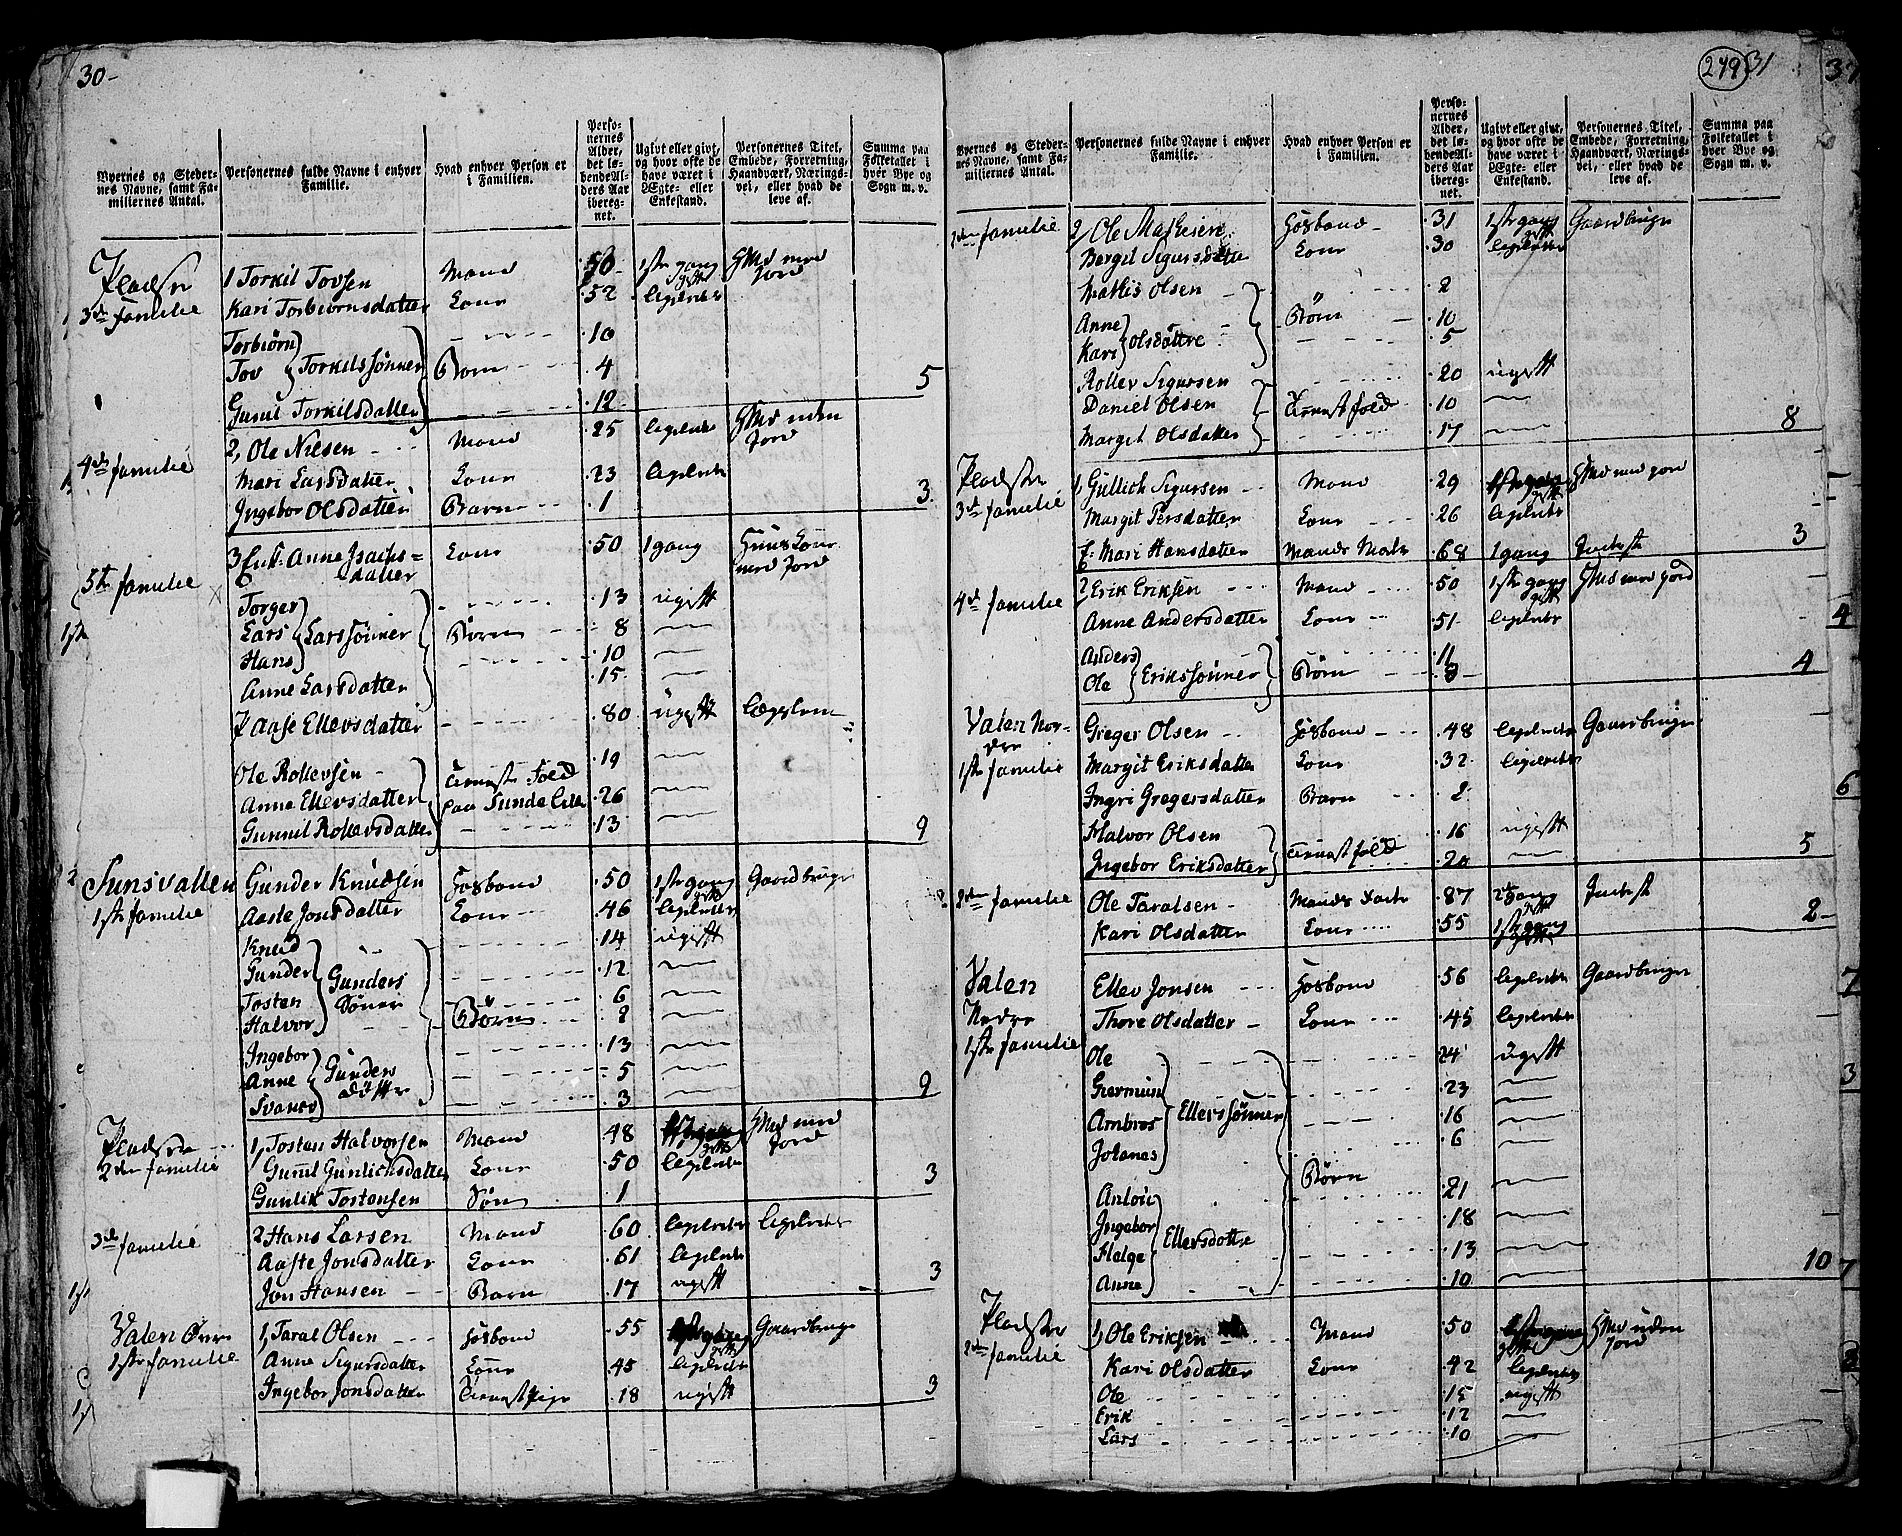 30-
Byernes og Steder-
nes Navne, samt Fa-
miliernes Antal.
Personernes fulde Navne i enhver
Familie.
Hvad enhver Person er
i Familien.
Perso-
nernes
Alder,
det lø-
bende Al-
ders Aar
ibereg-
net.
Ugivt eller givt,
og hvor ofte de
have været i
Ægte- eller
Enkestand.
Personernes Titel,
Embede, Forretning,
Haandværk, Nærings-
vei, eller hvad de
leve af.
Summa paa
Folketallet i
hver Bye og
Sogn m. v.
Pladser
3de familie
1 Torkil Tovsen Mand 50 1ste gang gift HMd med Jord
Kari Torbiørnsdatter Kone 52 ligeledes
Torbiørn 10
Tov Torkilssønner Børn 4
Gunil Torkilsdatter 12 5
4de familie
2, Ole Nilsen Mand 25 ligeledes HMd uden Jord
Mari Larsdatter Kone 23 ligeledes
Ingebor Olsdatter Barn 1 3
5te familie
3 Enk: Anne Isachs=
datter Kone 50 1 gang Huus Kone med Jord
Torger 13 ugift
Lars Larssønner Børn 8
Hans 10
Anne Larsdatter 15
Aase Ellevsdatter 80 ugift Lægslem
Ole Rollevsen 19
Anne Ellevsdatter Tienest Folk 26
Gunnil Rollevsdatter 13 9
Sunsvallen
1ste familie
Gunder Knudsen Hosbond 50 1ste gang gift Gaardbruger
Aaste Jonsdatter Kone 46 ligeledes
Knud 14 ugift
Gunder Gunders 12
Tosten Sønner 6
Halvor Børn 2
Ingebor 13
Anne Gunders døttre 5
Svanov 3 9
Pladser
2den familie
1, Tosten Halvorsen Mand 48 gift HMd med Jord
Gunil Gunlichsdatter Kone 50 ligeledes
Gunlik Tostensen Søn 1 3
3de familie
2 Hans Larsen Mand 60 ligeledes ligeledes
Aaste Jonsdatter Kone 61 ligeledes
Jon Hansen Barn 17 ugift 3
Valen Øvre
1ste familie
1, Taral Olsen Hosbond 55 gift Gaardbruger
Anne Sigursdatter Kone 45 ligeledes
Ingebor Jonsdatter Tienestpige 18 ugift 3
249 31
Byernes og Steder-
nes Navne, samt Fa-
miliernes Antal.
Personernes fulde Navne i enhver
Familie.
Hvad enhver Person er
i Familien.
Perso-
nernes
Alder,
det lø-
bende Al-
ders Aar
ibereg-
net.
Ugivt eller givt,
og hvor ofte de
have været i
Ægte- eller
Enkestand.
Personernes Titel,
Embede, Forretning,
Haandværk, Nærings-
vei, eller hvad de
leve af.
Summa paa
Folketallet i
hver Bye og
Sogn m. v.
2den familie
2, Ole Mathisen Hosbond 31 1ste gang gift Gaardbruger
Bergit Sigursdatter Kone 30 ligeledes
Mathis Olsen 2
Anne Børn 10
Kari Olsdøttre 5
Rollev Sigursen 20 ugift
Daniel Olsen Tienestfolk 10
Margit Olsdatter 17 8
Pladser
3de familie
1, Gullich Sigursen Mand 29 gift HMd med jord
Margit Persdatter Kone 26 ligeledes
Mari Hansdatter Mands Moder 68 1 gang Inderst 3
4de familie
2 Erik Eriksen Mand 50 1ste gang gift HMd med jord
Anne Andersdatter Kone 51 ligeledes
Anders 11
Ole Erikssønner Børn 4
Valen Nor-
dre
1ste familie
Greger Olsen Hosbond 48 ligeledes Gaardbruger
Margit Eriksdatter Kone 32 ligeledes
Ingri Gregersdatter Barn 2
Halvor Olsen 16 ugift
Ingebor Eriksdatter Tienestfolk 20 5
2den familie
Ole Taralsen Mands Fader 87 2 gang gift Inderst
Kari Olsdatter Kone 55 1ste gang gift 2
Valen
Nedre
1ste familie
Ellev Jonsen Hosbond 56 ligeledes Gaardbruger
Thore Olsdatter Kone 45 ligeledes
Ole 24 ugift
Giermun 23
Ambros Ellevssønner 16
Johanes 6
Børn
21
Ingebor 18
Helge Ellevsdottre 13
Anne 10 10
Pladser
2den familie
1, Ole Eriksen Mand 50 gift HMd uden Jord
Kari Olsdatter Kone 42 ligeledes
Ole 15 ugift
Erik 12
Lars 10